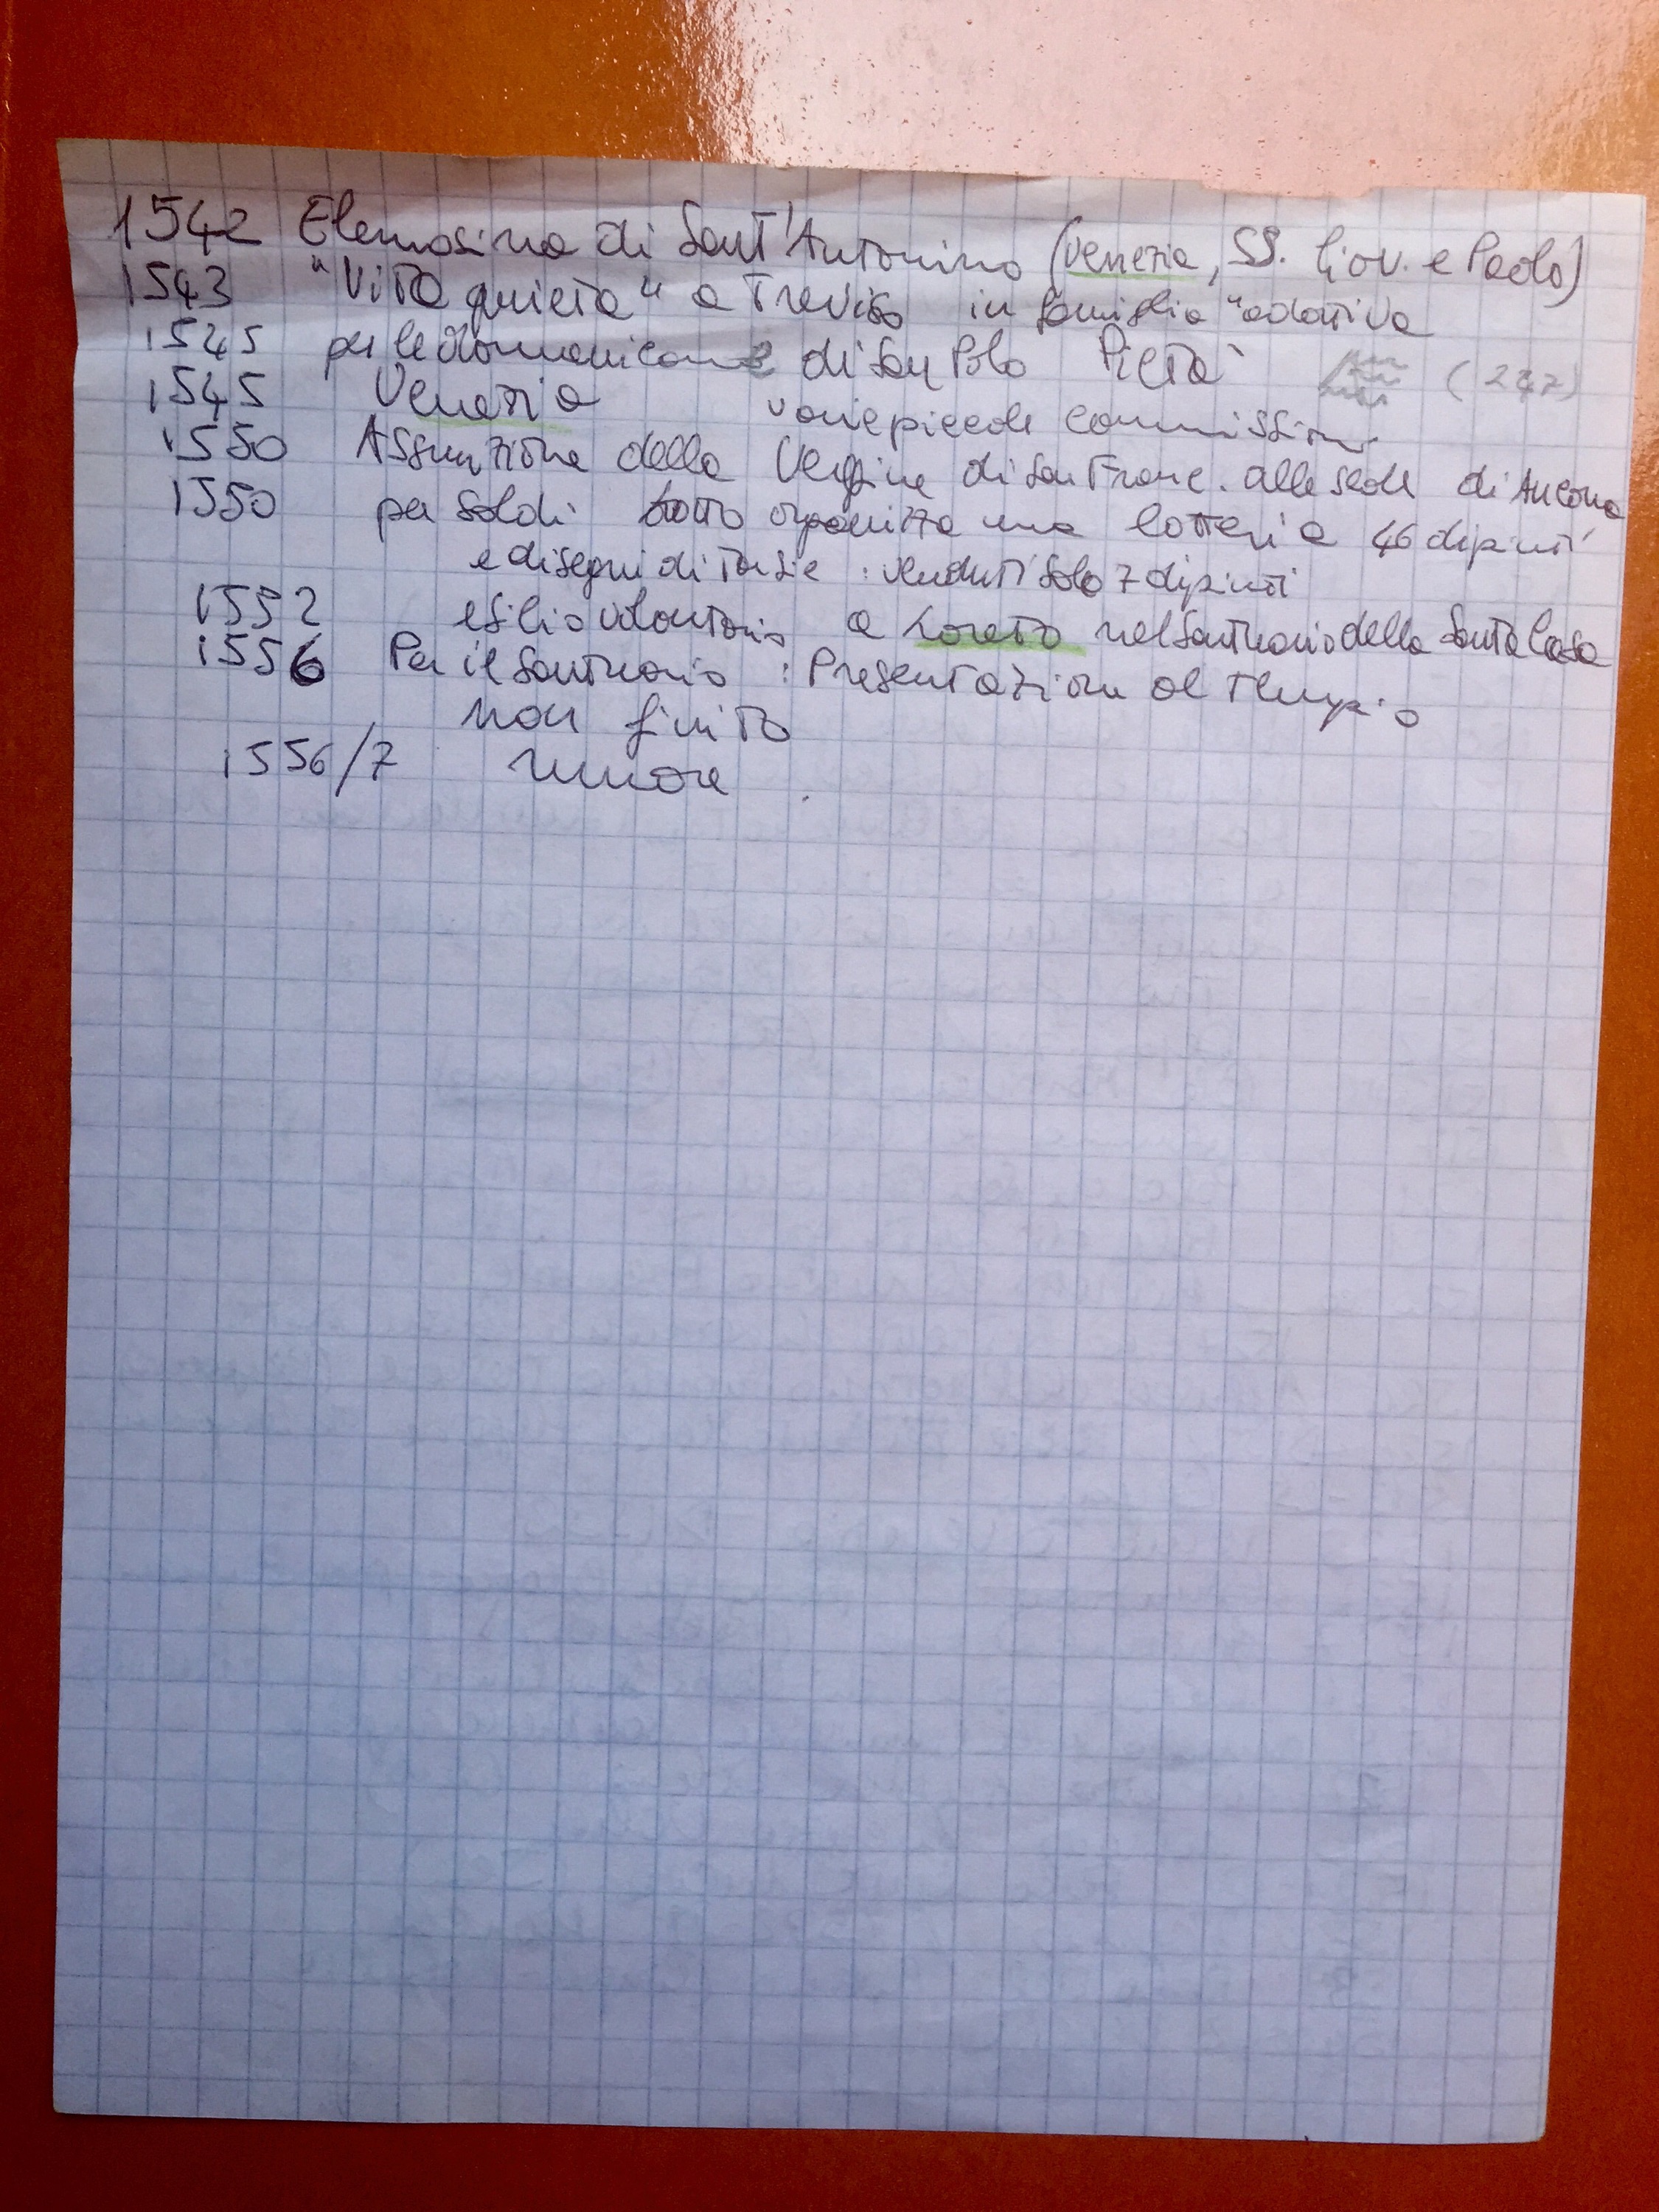 1542 Elemosina di Sant'Antonino (Venezia, SS. Giov. e Paolo)
1543 "Vita quieta" a Treviso in famiglia "adottiva
1545 per le domenicane di San Polo Pietà (247)
1545 Venezia varie piccole commissioni
1550 Assunzione della Vergine di San Franc. alle scale di Ancona
1550 per soldi Lotto organizza una lotteria 46 dipinti
e disegni di tarsie : venduti solo 7 dipinti
1552 esilio volontario a Loreto nel santuario della Santa Casa
1556 Per il santuario : Presentazione al tempio
non finito
1556/7 muore